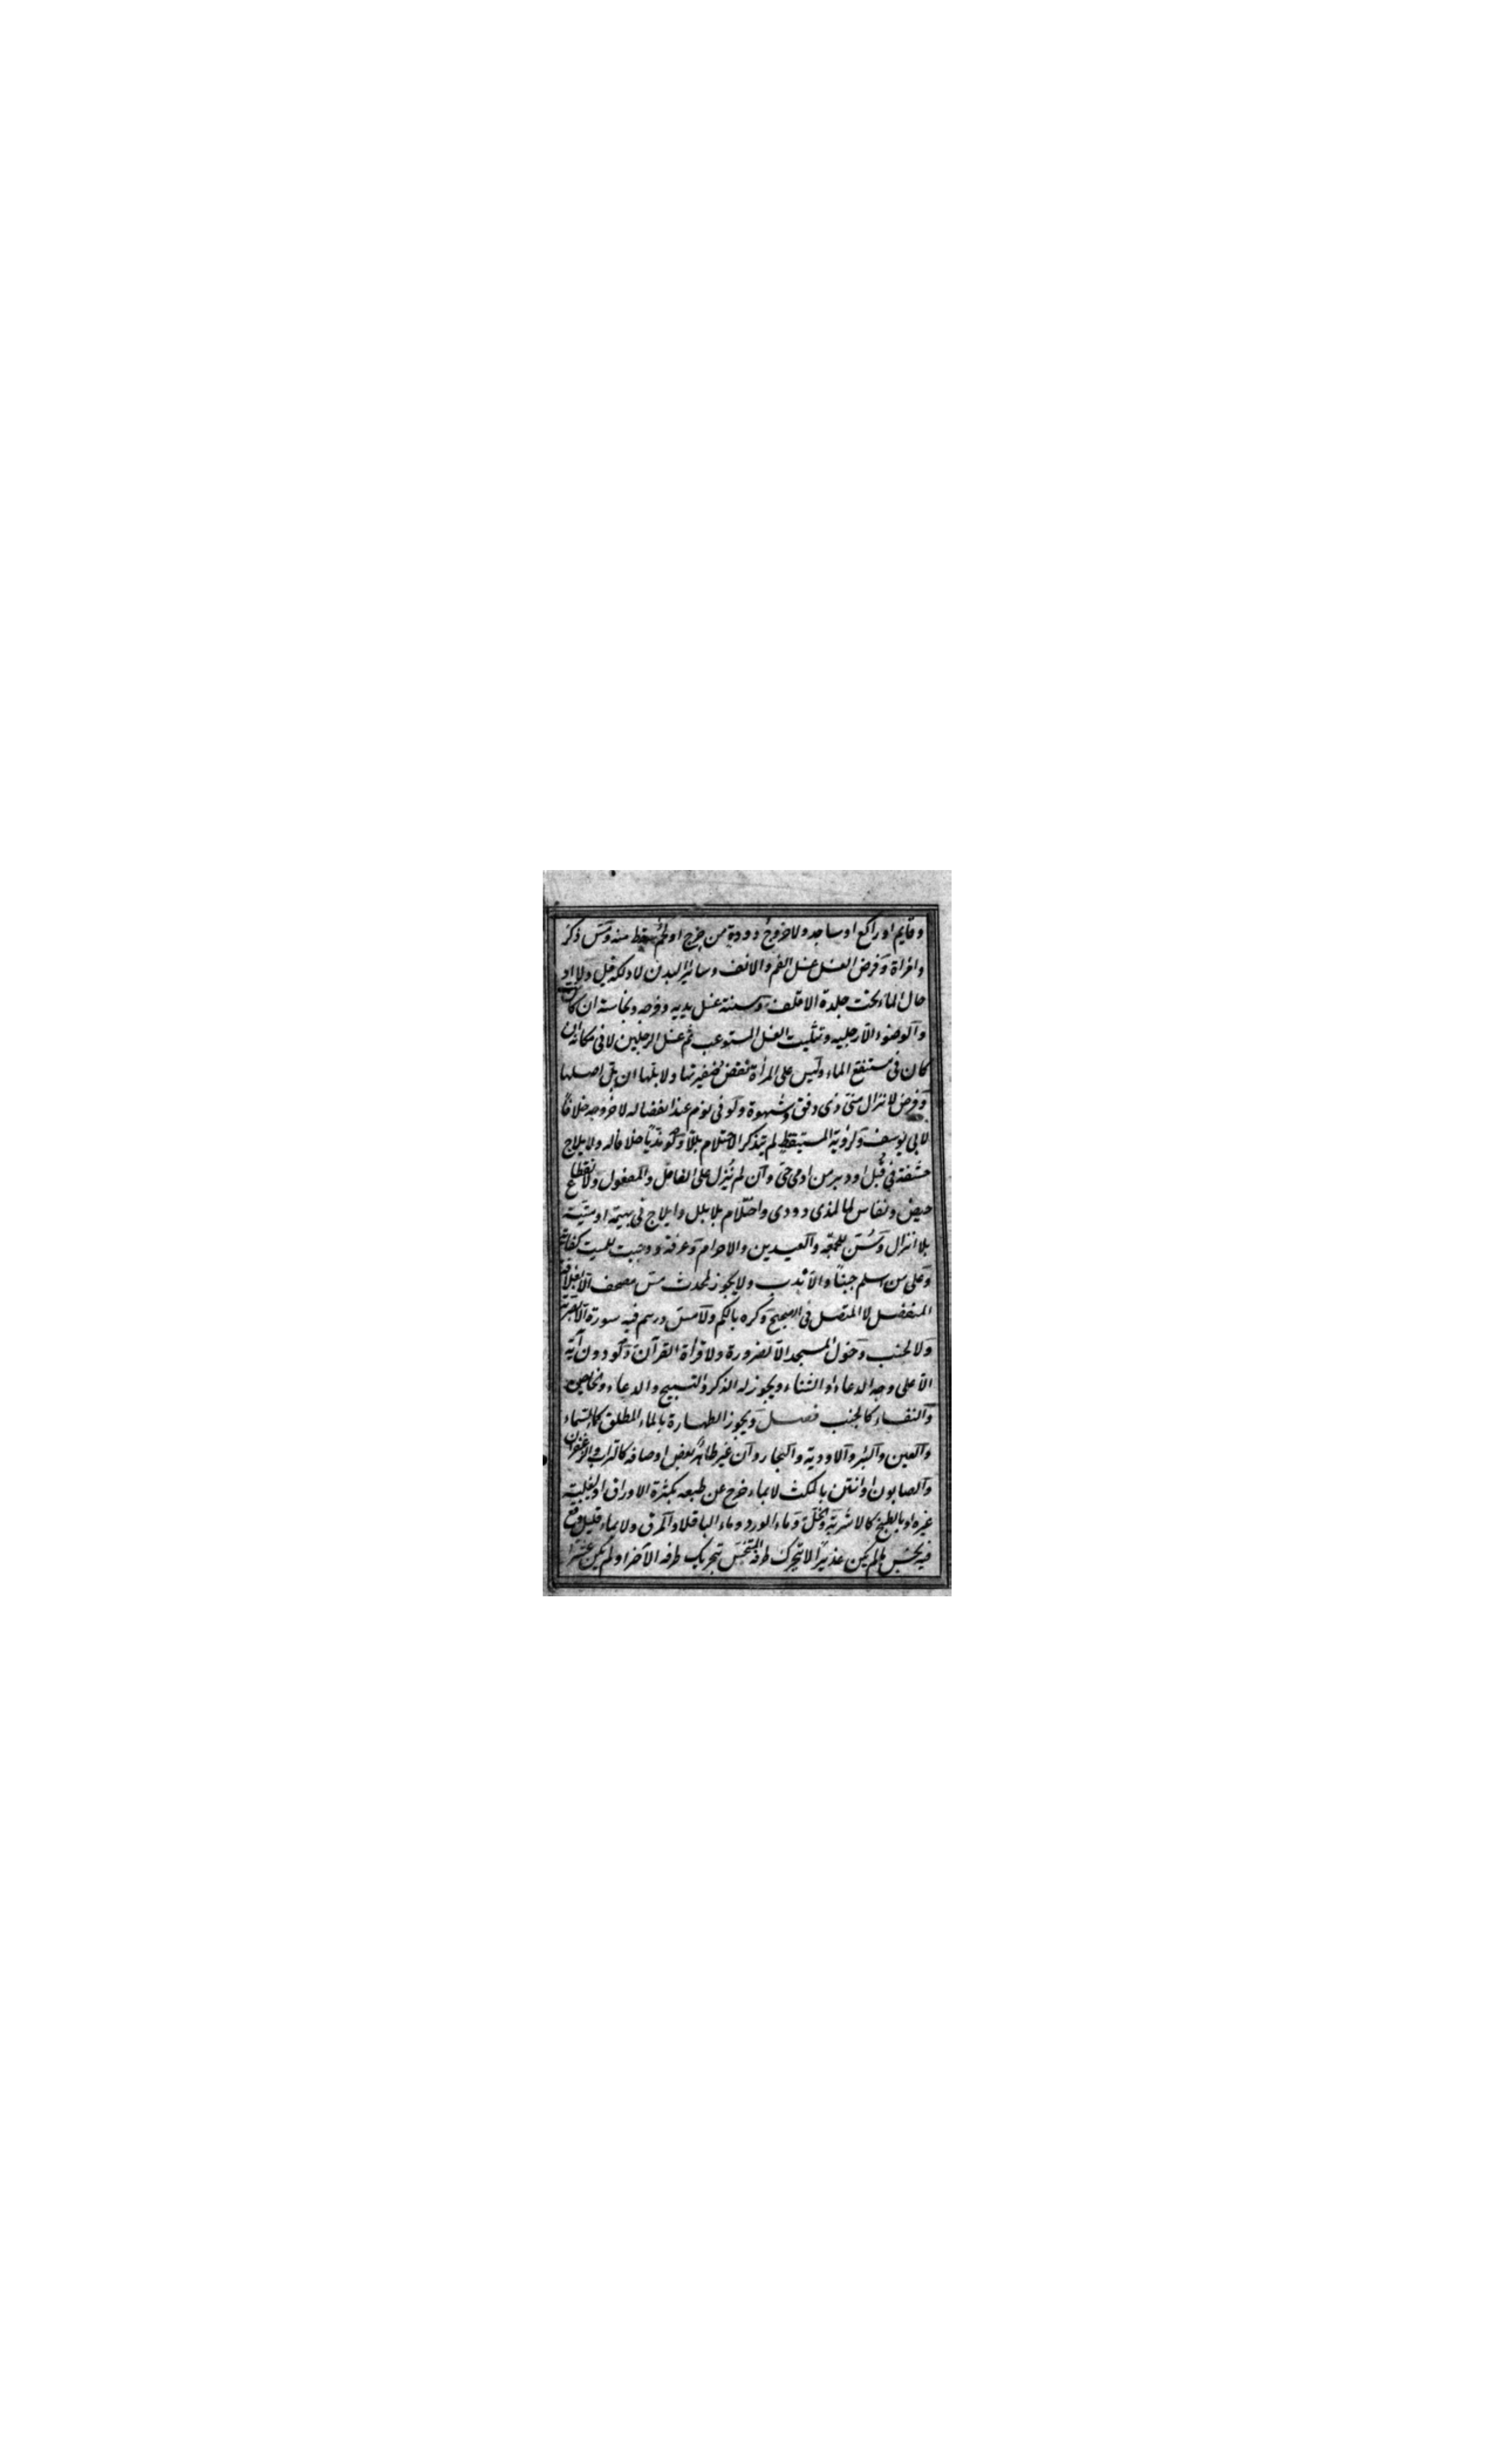 وقايم او راكع او ساجد ولا خروج دودة من جرح او لحم سقط منه ومس ذكر
وامرأة وفرض الغسل غسل الفم والانف وسائر البدن لا دلكه قيل ولا اد
خال الماء تحت جلدة الاقلف وسنته غسل يديه وفرجه ونجاسة ان كان
والوضوء الا رجليه وتثليث الغسل المستوعب ثم غسل الرجلين لا فى مكانه ان
كان فى مستنقع الماء وليس على المرأة نقض ضفيرتها ولا بلها ان بل اصلها
وفرض لانزال منى ذى دفق وشهوة ولو فى نوم عند انفصاله لا خروجه خلافا
لابى يوسف ولرؤية المستيقظ لم يتذكر الاحتلام بللا ولو مذيا خلافا له ولايلاج
حشفة فى قبل او دبر من ادمى حى وان لم ينزل على الفاعل والمفعول ولانقطاع
حيض ونفاس لا لمذى وودى واحتلام بلا بلل وايلاج فى بهيمة او ميتة
بلا انزال وسن للجمعة والعيدين والاحرام وعرفة ووجب للميت كفاية
وعلى من اسلم جنبا والا ندب ولا يجوز لمحدث مس مصحف الا بغلافه
المنفصل لا المتصل فى الصحيح وكره بالكم ولا مس درهم فيه سورة الا بصرته
ولا لجنب دخول المسجد الا لضرورة ولا قراة القرآن ولو دون آية
الا على وجه الدعاء او الثناء ويجوز له الذكر والتسبيح والدعاء والحائض
والنفساء كالجنب فصل ويجوز الطهارة بالماء المطلق كماء السماء
والعين والبئر والاودية والبحار وان غير طاهر بعض اوصافه كالتراب والزعفران
والصابون او انتن بالمكث لا بماء خرج عن طبعه بكثرة الاوراق او بغلبة
غيره او بالطبخ كالاشربة والخل وماء الورد وماء الباقلا والمرق ولا بماء قليل وقع
فيه نجس ما لم يكن غديرا لا يتحرك طرفه المتنجس بتحريك طرفه الآخر او لم يكن عشرا